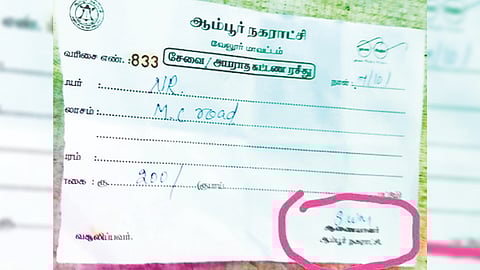 ஆம்பூர் நகராட்சி
வேலூர் மாவட்டம்
வரிசை எண். : 833 சேவை / அபராத கட்டண ரசீது நாள்
யர் NR.
லாசம் M.C road
ரம்
கை: ரூ. 200/ (ரூபாய்
ஆணையாளர்
வசூலிப்பவர். ஆம்பூர் நகராட்சி.